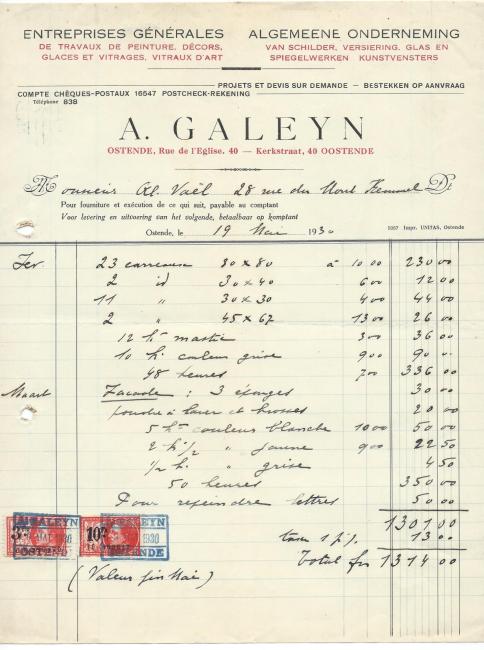 ENTREPRISES GÉNÉRALES ALGEMEENE ONDERNEMING
DE TRAVAUX DE PEINTURE, DÉCORS, VAN SCHILDER, VERSIERING, GLAS EN
GLACES ET VITRAGES, VITRAUX D'ART SPIEGELWERKEN KUNSTVENSTERS
PROJETS ET DEVIS SUR DEMANDE — BESTEKKEN OP AANVRAAG
COMPTE CHÈQUES-POSTAUX 16547 POSTCHECK-REKENING
Téléphone 838
A. GALEYN
OSTENDE, Rue de l'Eglise, 40 — Kerkstraat, 40 OOSTENDE
Monsieur Al. Vaël 28 rue du Mont Kemmel Dt
Pour fourniture et exécution de ce qui suit, payable au comptant
Voor levering en uitvoering van het volgende, betaalbaar op komptant
Ostende, le 19 Mai 1930 Impr. UNITAS, Ostende
Fev. 23 carreaux 80 x 80 à 10 00 230 00
2 id 30 x 40 6 00 12 00
11 " 30 x 30 4 00 44 00
2 " 45 x 67 13 00 26 00
12 k° mastic 3 00 36 00
10 k. couleur grise 9 00 90 0.
48 heures 7 00 336 00
Maart Facade : 3 éponges 30 00
poudre à laver et brosses 20 00
5 k°s couleurs blanche 10 00 50 00
2 k. 1/2 " jaune 9 00 22 50
1/2 k. " grise 4 50
50 heures 350 00
Pour repeindre lettres 50 00
1301 00
taxe 1 % 13 00
Total frs 1314 00
(Valeur fin Mai)
A. GALEYN
1930
OSTENDE
10
GALEYN
1930
OSTENDE